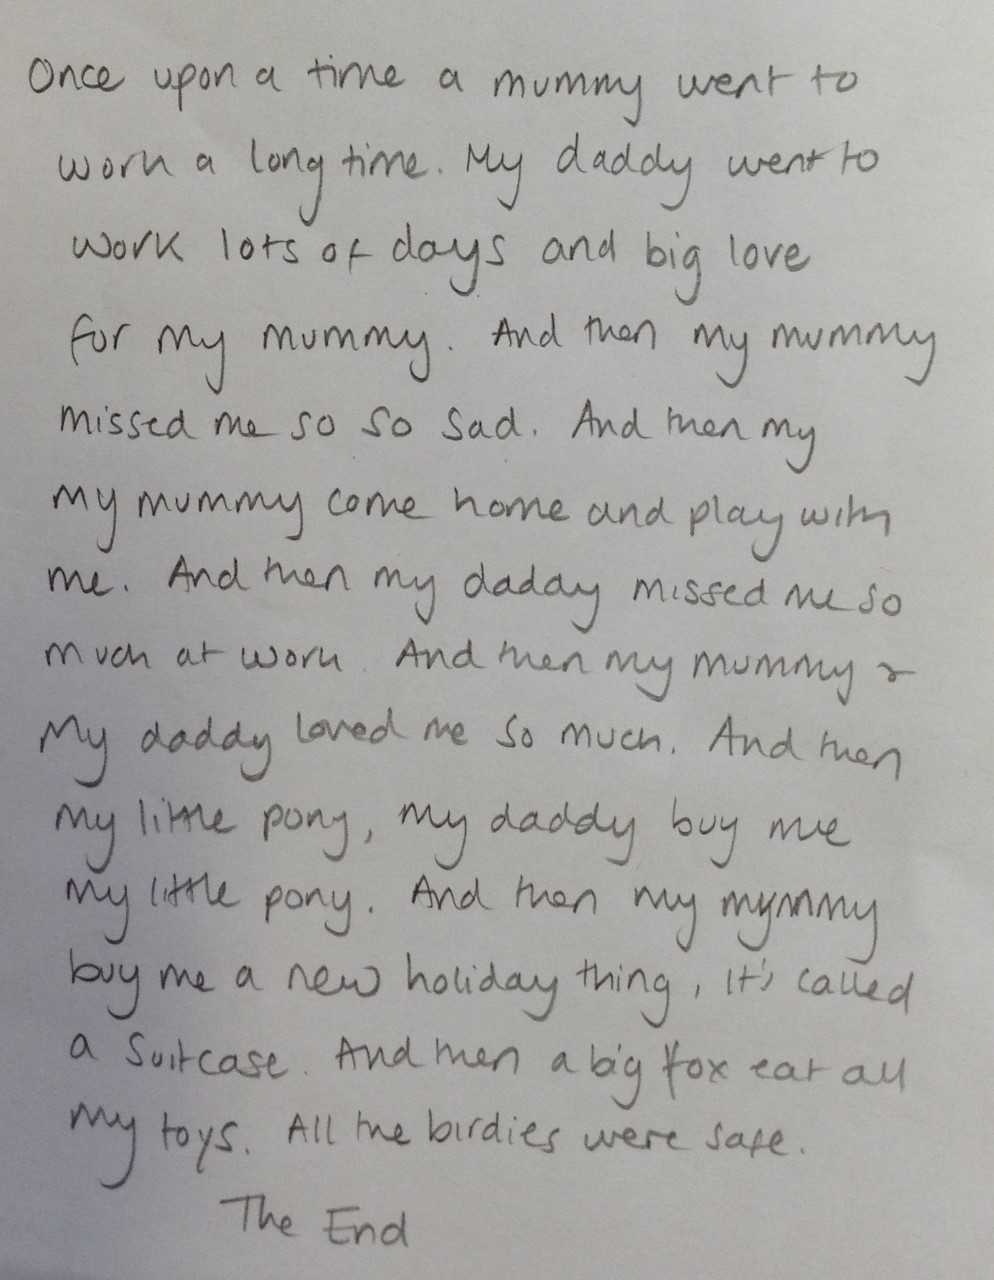 Once upon a time a mummy went to
work a long time. My daddy went to
work lots of days and big love
for my mummy. And then my mummy
missed me so so sad. And then my
my mummy come home and play with
me. And then my daddy missed me so
much at work. And then my mummy &
My daddy loved me so much. And then
my little pony, my daddy buy me
my little pony. And then my mymmy
buy me a new holiday thing, it's called
a suitcase. And then a big fox eat all
my toys. All the birdies were safe.
The End